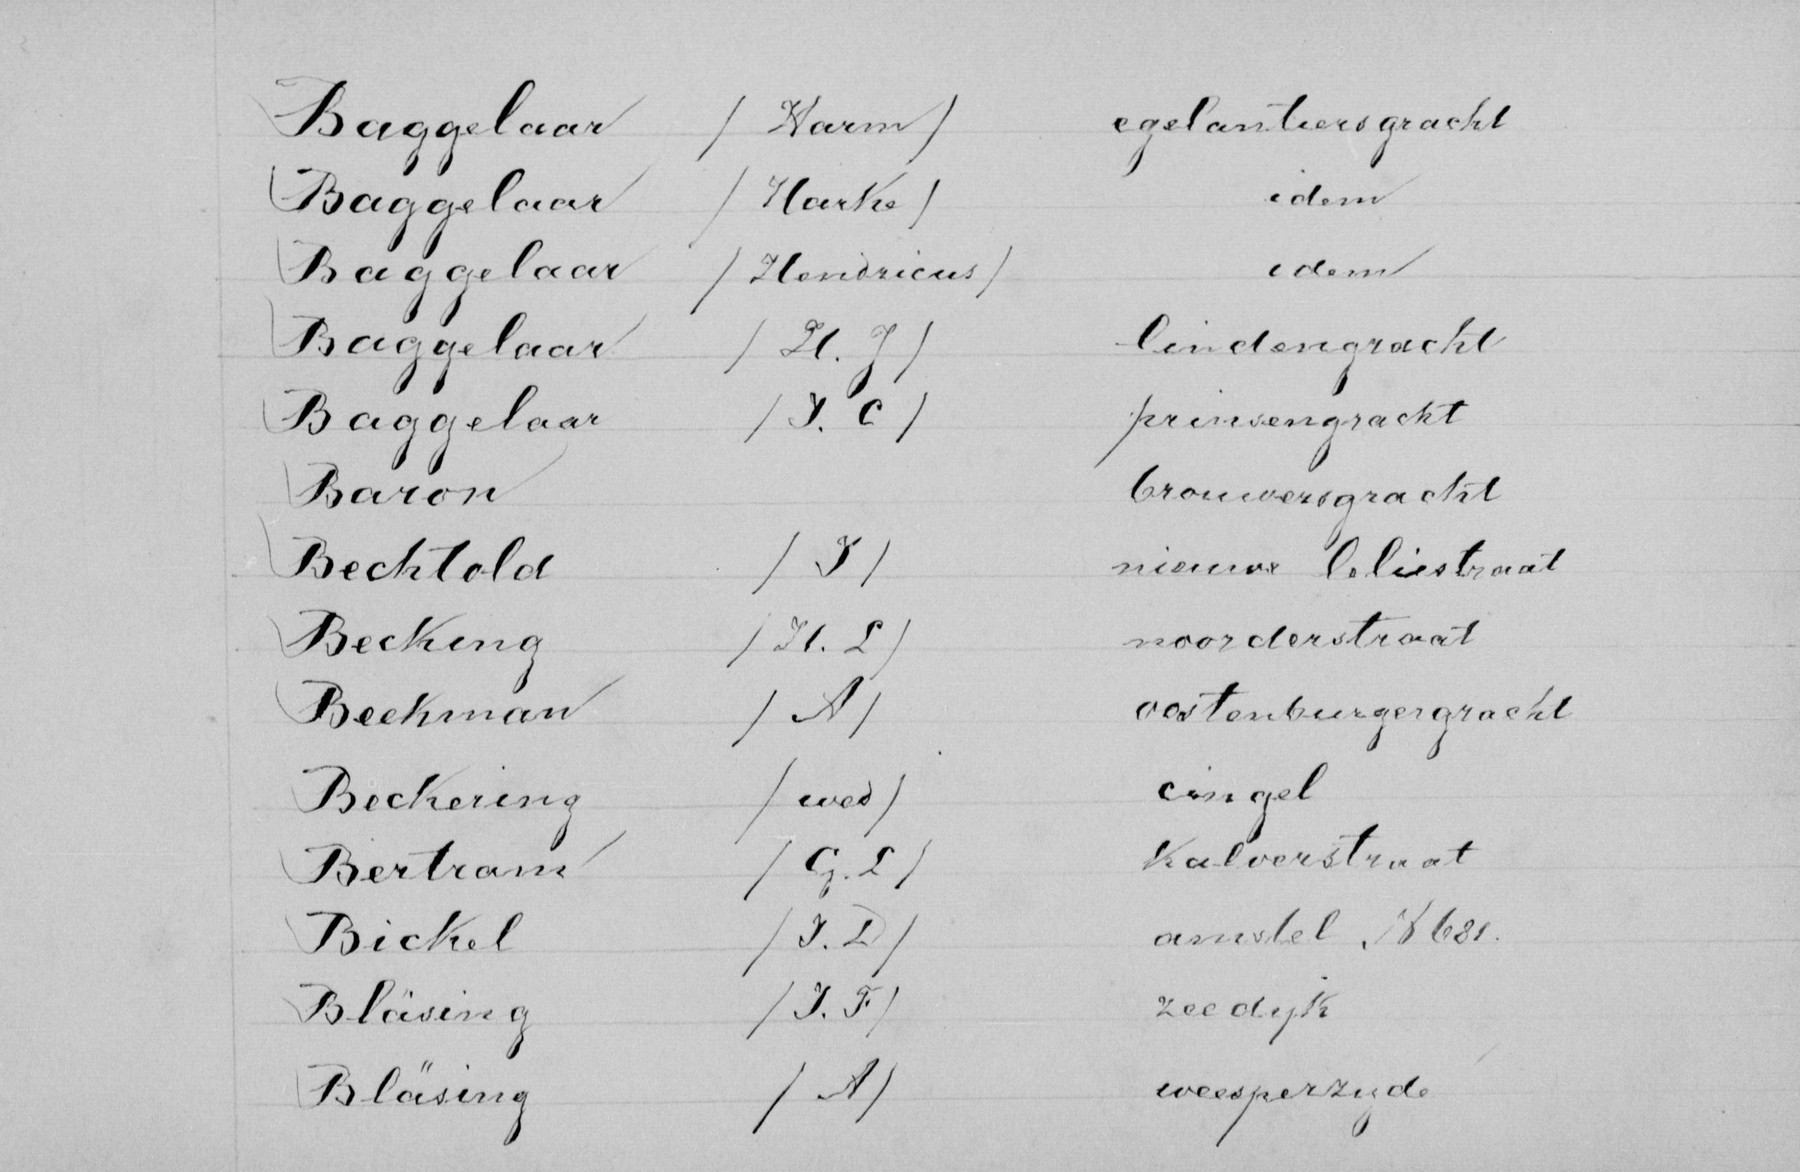 Baggelaar (Harm) egelantiersgracht
Baggelaar (Harke) idem
Baggelaar (Hendricus) idem
Baggelaar (H. J) lindengracht
Baggelaar (J. C) prinsengracht
Baron brouwersgracht
Bechtold (J) nieuwe leliestraat
Becking (H. L) noorderstraat
Beekman (A) oostenburgergracht
Beckering (wed) cingel
Bertram (G. L) Kalverstraat
Bickel (J. D) amstel N 681.
Bläsing (J. F) zeedyk
Bläsing (A) weesperzyde